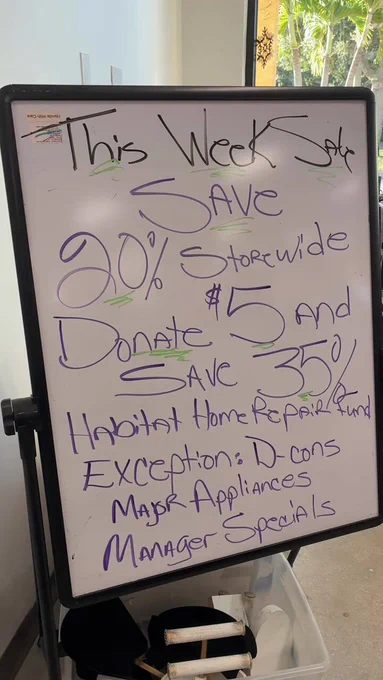 This Week Sale
Save
20% Storewide
Donate $5 and
Save 35%
Habitat Home Repair Fund
Exception: D-cons
Major Appliances
Manager Specials